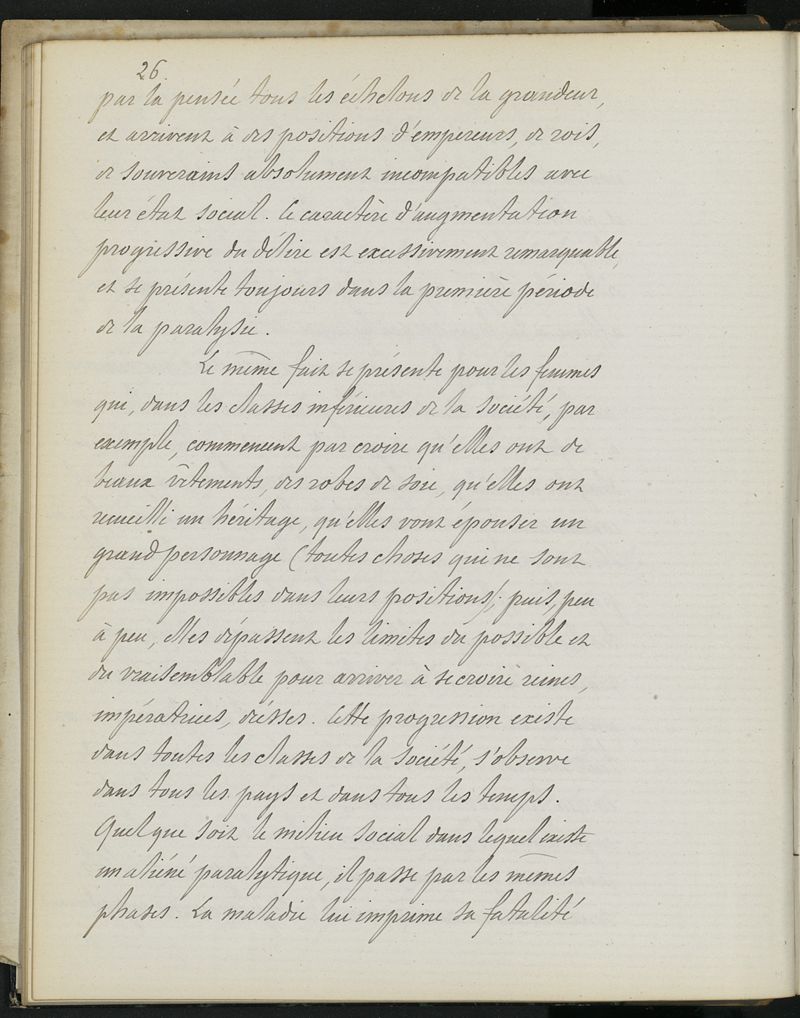 26
par la pensée tous les échelons de la grandeur,
et arrivent à des positions d'empereurs, de rois,
de souverains absolument incompatibles avec
leur état social. Ce caractère d'augmentation
progressive du délire est excessivement remarquable,
et se présente toujours dans la première période
de la paralysie.
Le même fait se présente pour les femmes
qui, dans les classes inférieures de la société, par
exemple, commencent par croire qu'elles ont de
beaux vêtements, des robes de soie, qu'elles ont
recueilli un héritage, qu'elles vont épouser un
grand personnage (toutes choses qui ne sont
pas impossibles dans leurs positions); puis, peu
à peu, elles dépassent les limites du possible et
du vraisemblable pour arriver à se croire reines,
impératrices, déesses. Cette progression existe
dans toutes les classes de la société, s'observe
dans tous les pays et dans tous les temps.
Quel que soit le milieu social dans lequel existe
un aliéné paralytique, il passe par les mêmes
phases. La maladie lui imprime sa fatalité